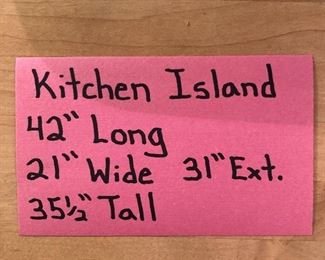 Kitchen Island
42" Long
21" Wide 31" Ext.
35½" Tall